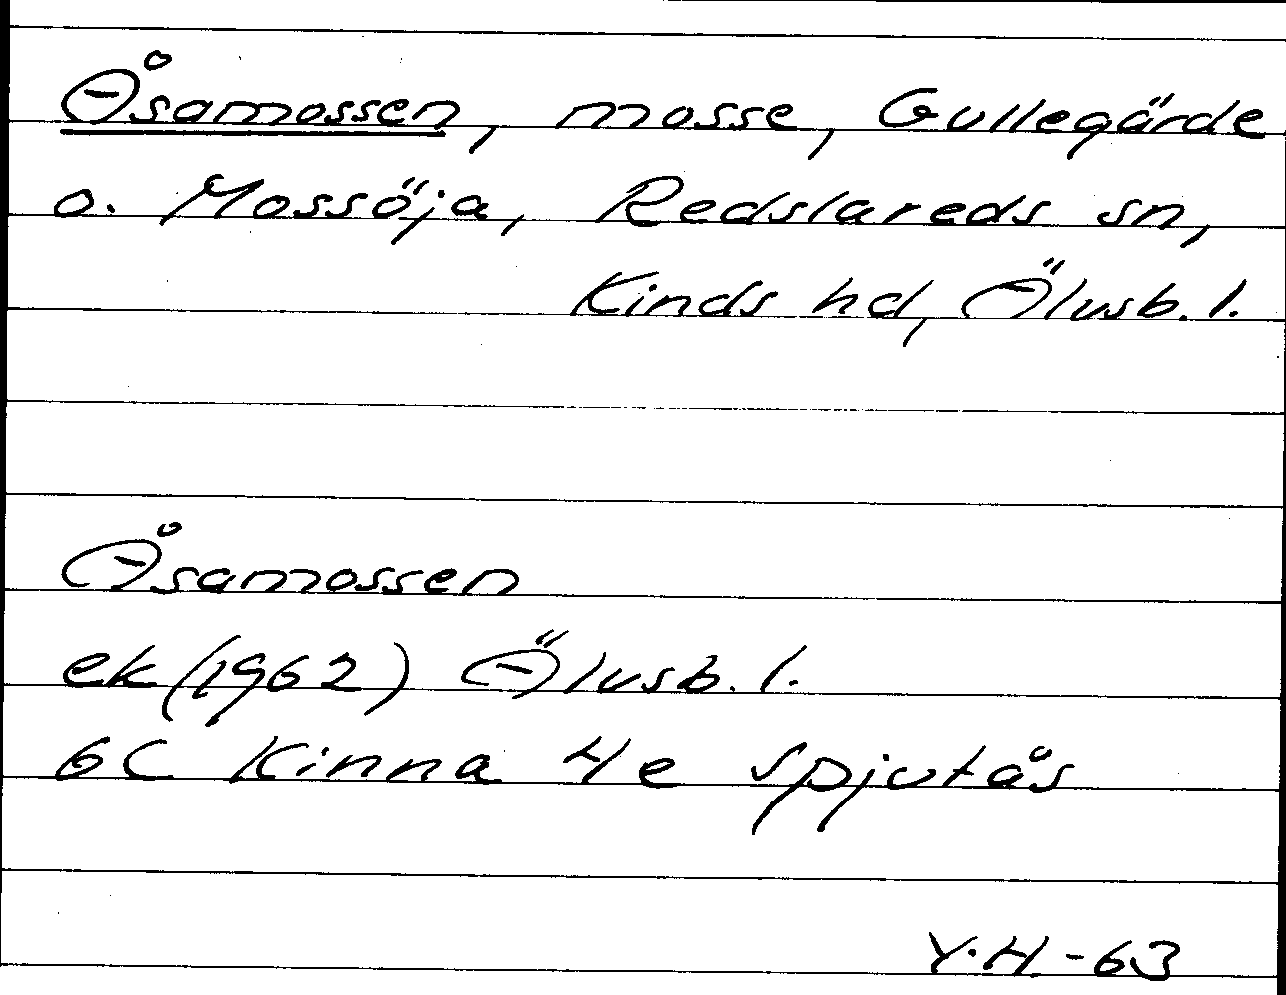 Åsamossen, mosse, Gullegärde
o. Mossöja, Redslareds sn,
Kinds hd, Älvsb. l.
Åsamossen
ek (1962) Älvsb. l.
6C Kinna 4e Spjutås
Y.H. -63